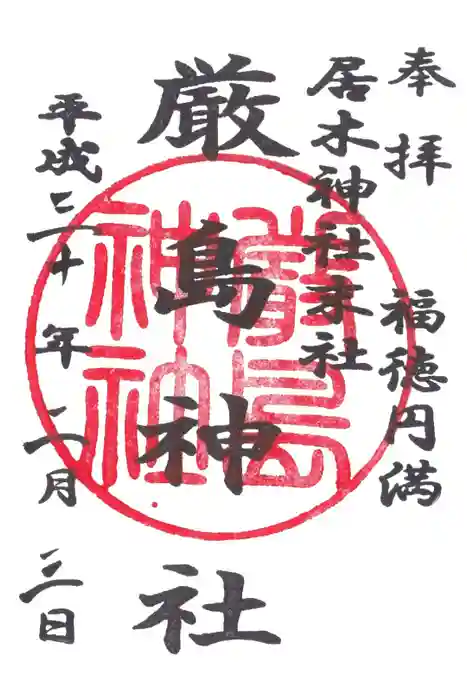 奉拝 福徳円満
居木神社末社
厳島神社
嚴島
神社
平成三十年二月三日